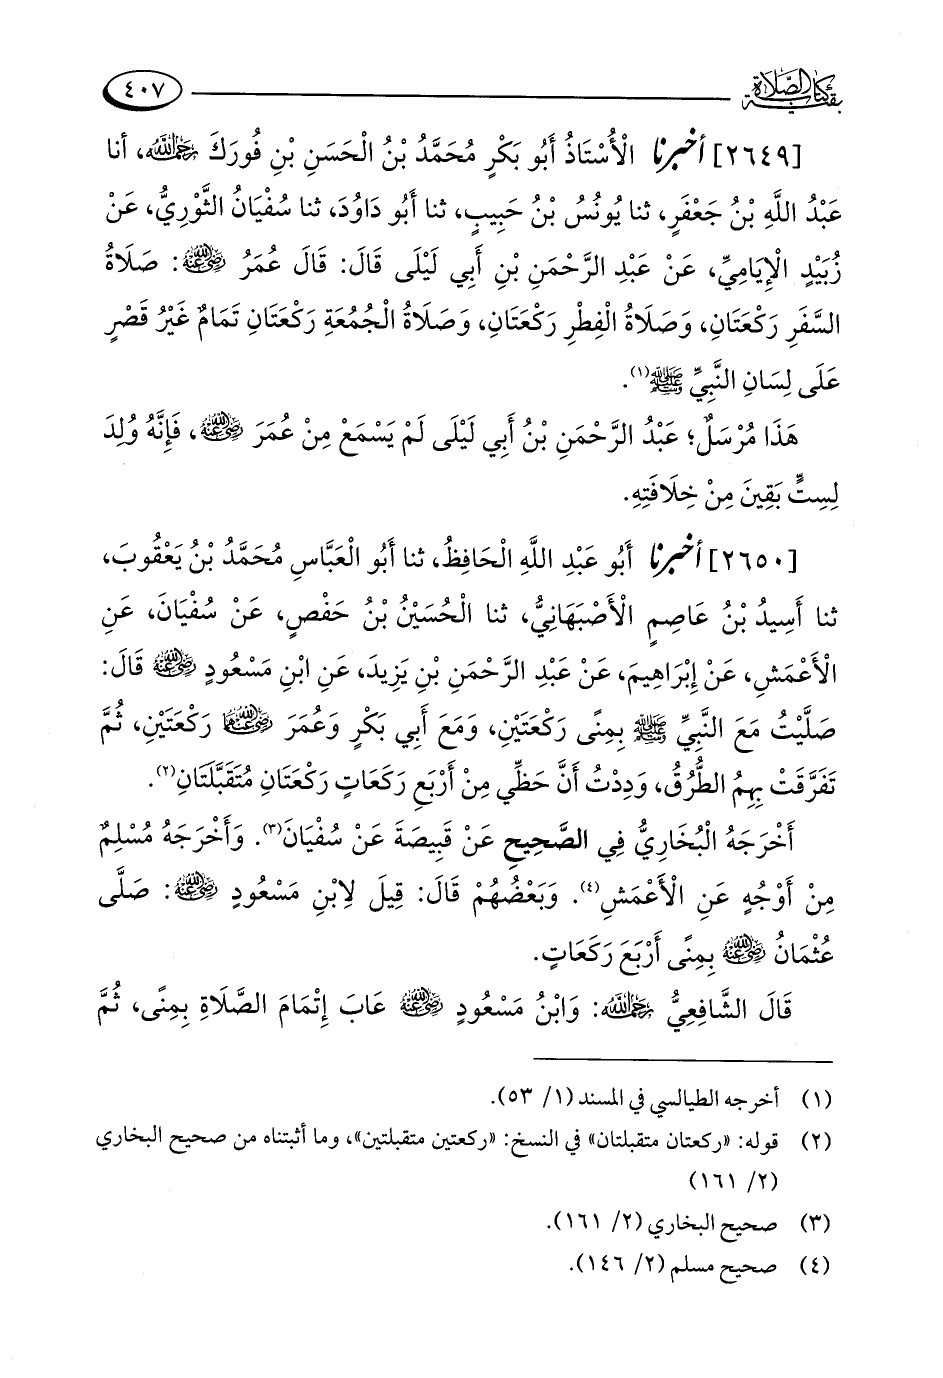 بقية كتاب الصلاة
٤٠٧
[٢٦٤٩] أخبرنا الْأُسْتَاذُ أَبُو بَكْرٍ مُحَمَّدُ بْنُ الْحَسَنِ بْنِ فُورَكَ رَحِمَهُ اللَّهُ، أنا
عَبْدُ اللَّهِ بْنُ جَعْفَرٍ، ثنا يُونُسُ بْنُ حَبِيبٍ، ثنا أَبُو دَاوُدَ، ثنا سُفْيَانُ الثَّوْرِيُّ، عَنْ
زُبَيْدٍ الْإِيَامِيِّ، عَنْ عَبْدِ الرَّحْمَنِ بْنِ أَبِي لَيْلَى قَالَ: قَالَ عُمَرُ رَضِيَ اللَّهُ عَنْهُ: صَلَاةُ
السَّفَرِ رَكْعَتَانِ، وَصَلَاةُ الْفِطْرِ رَكْعَتَانِ، وَصَلَاةُ الْجُمُعَةِ رَكْعَتَانِ تَمَامٌ غَيْرُ قَصْرٍ
عَلَى لِسَانِ النَّبِيِّ ﷺ(١).
هَذَا مُرْسَلٌ؛ عَبْدُ الرَّحْمَنِ بْنُ أَبِي لَيْلَى لَمْ يَسْمَعْ مِنْ عُمَرَ رَضِيَ اللَّهُ عَنْهُ، فَإِنَّهُ وُلِدَ
لِسِتٍّ بَقِينَ مِنْ خِلَافَتِهِ.
[٢٦٥٠] أخبرنا أَبُو عَبْدِ اللَّهِ الْحَافِظُ، ثنا أَبُو الْعَبَّاسِ مُحَمَّدُ بْنُ يَعْقُوبَ،
ثنا أَسِيدُ بْنُ عَاصِمٍ الْأَصْبَهَانِيُّ، ثنا الْحُسَيْنُ بْنُ حَفْصٍ، عَنْ سُفْيَانَ، عَنِ
الْأَعْمَشِ، عَنْ إِبْرَاهِيمَ، عَنْ عَبْدِ الرَّحْمَنِ بْنِ يَزِيدَ، عَنِ ابْنِ مَسْعُودٍ رَضِيَ اللَّهُ عَنْهُ قَالَ:
صَلَّيْتُ مَعَ النَّبِيِّ ﷺ بِمِنًى رَكْعَتَيْنِ، وَمَعَ أَبِي بَكْرٍ وَعُمَرَ رَضِيَ اللَّهُ عَنْهُمَا رَكْعَتَيْنِ، ثُمَّ
تَفَرَّقَتْ بِهِمُ الطُّرُقُ، وَدِدْتُ أَنَّ حَظِّي مِنْ أَرْبَعِ رَكَعَاتٍ رَكْعَتَانِ مُتَقَبَّلَتَانِ(٢).
أَخْرَجَهُ الْبُخَارِيُّ فِي الصَّحِيحِ عَنْ قَبِيصَةَ عَنْ سُفْيَانَ(٣). وَأَخْرَجَهُ مُسْلِمٌ
مِنْ أَوْجُهٍ عَنِ الْأَعْمَشِ(٤). وَبَعْضُهُمْ قَالَ: قِيلَ لِابْنِ مَسْعُودٍ رَضِيَ اللَّهُ عَنْهُ: صَلَّى
عُثْمَانُ رَضِيَ اللَّهُ عَنْهُ بِمِنًى أَرْبَعَ رَكَعَاتٍ.
قَالَ الشَّافِعِيُّ رَحِمَهُ اللَّهُ: وَابْنُ مَسْعُودٍ رَضِيَ اللَّهُ عَنْهُ عَابَ إِتْمَامَ الصَّلَاةِ بِمِنًى، ثُمَّ
(١) أخرجه الطيالسي في المسند (١/ ٥٣).
(٢) قوله: «ركعتان متقبلتان» في النسخ: «ركعتين متقبلتين»، وما أثبتناه من صحيح البخاري
(٢/ ١٦١)
(٣) صحيح البخاري (٢/ ١٦١).
(٤) صحيح مسلم (٢/ ١٤٦).